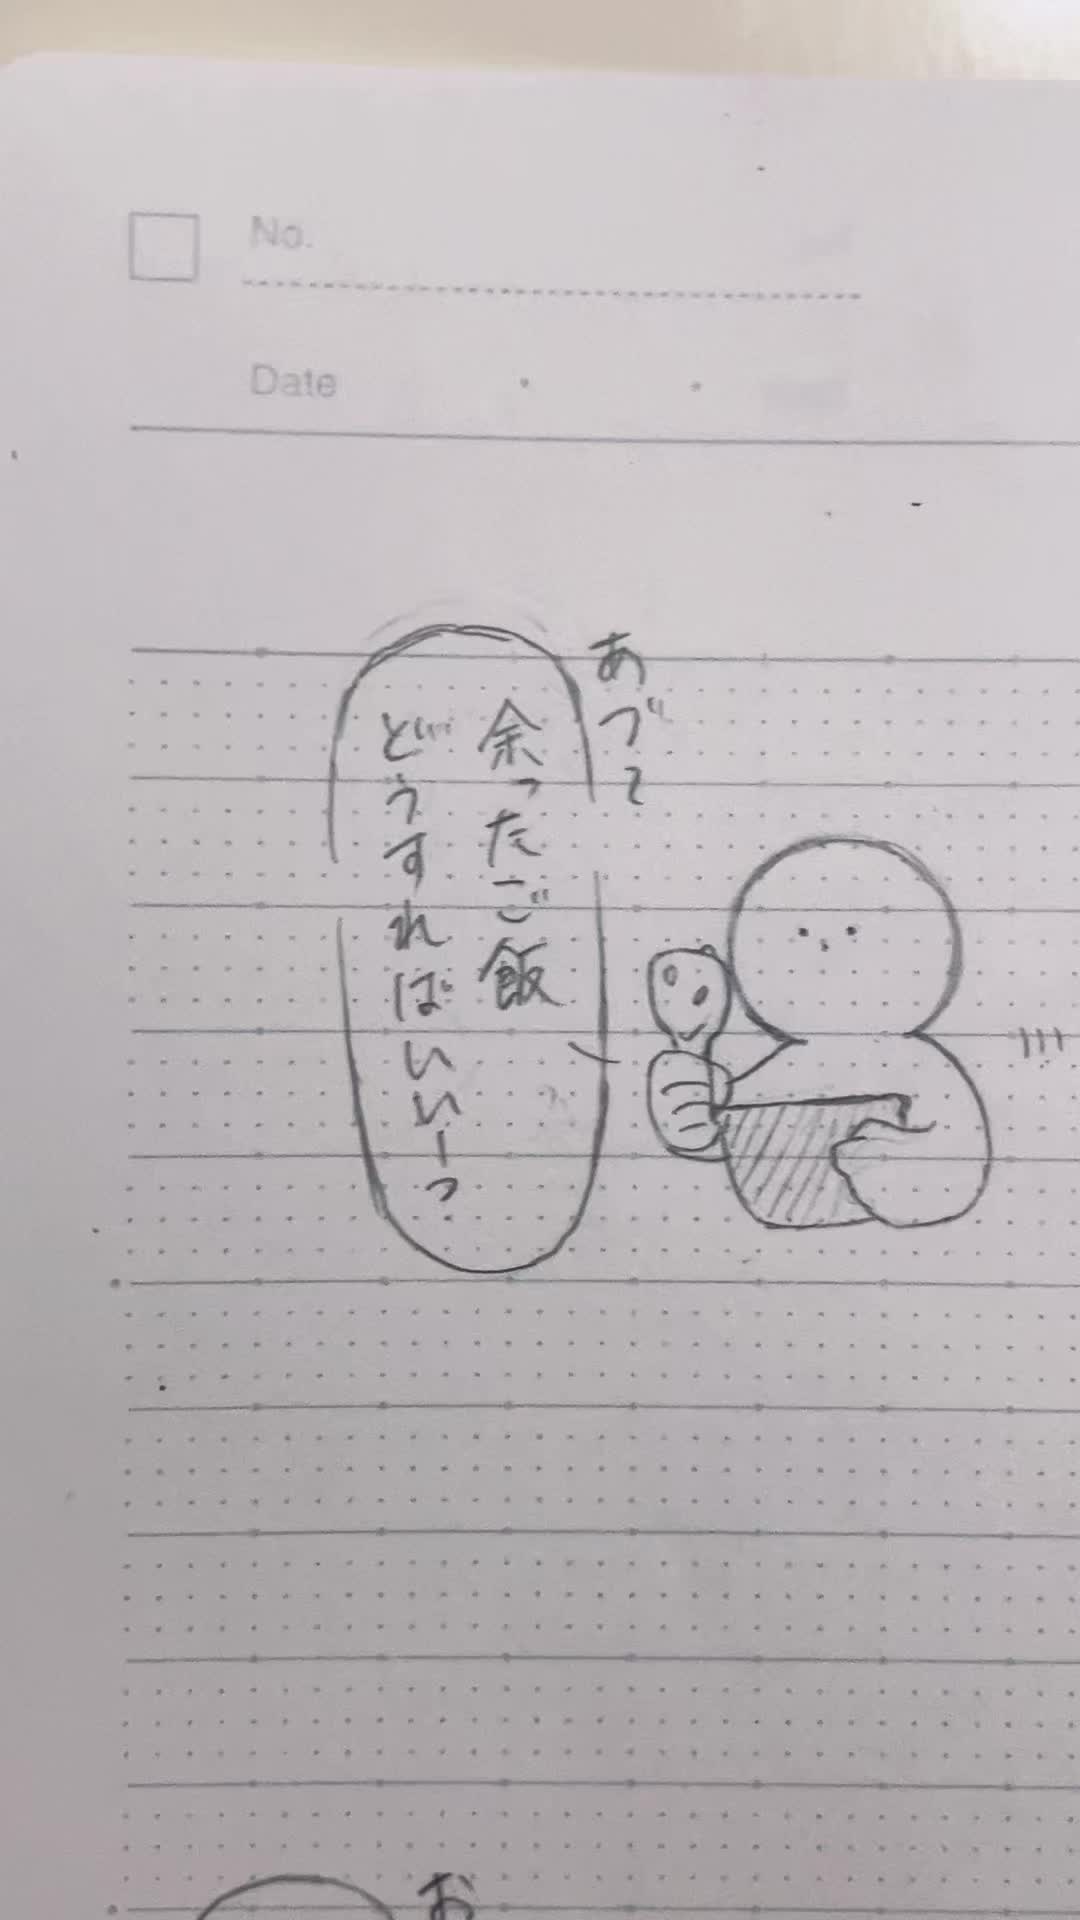 No.
Date
あづ〜
余ったご飯
どうすればいいーっ
お